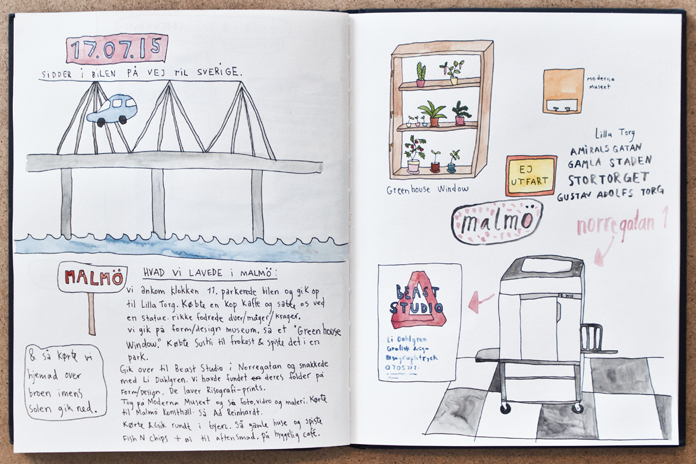 17.07.15
SIDDER I BILEN PÅ VEJ TIL SVERIGE.
MALMÖ
HVAD VI LAVEDE I MALMÖ:
Vi ankom klokken 11, parkerede bilen og gik op
til Lilla Torg. Købte en kop kaffe og satte os ved
en statue. Rikke fodrede duer/måger/krager.
Vi gik på form/design museum, så et "Greenhouse
Window." Købte sushi til frokost & spiste det i en
park.
Gik over til Beast Studio i Norregatan og snakkede
med Li Dahlgren. Vi havde fundet deres folder på
Form/Design. De laver Risografi-prints.
Tog på Moderna Museet og så foto, video og maleri. Kørte
til Malmö Konsthall. Så Ad Reinhardt.
Kørte & gik rundt i byen. Så gamle huse og spiste
Fish N Chips + øl til aftensmad, på hyggelig café.
& så kørte vi
hjemad over
broen imens
solen gik ned.
Greenhouse Window
Moderna
Museet
EJ
UTFART.
Lilla Torg
AMIRALSGATAN
GAMLA STADEN
STORTORGET
GUSTAV ADOLFS TORG
malmö
norregatan 1
BEAST
STUDIO
Li Dahlgren